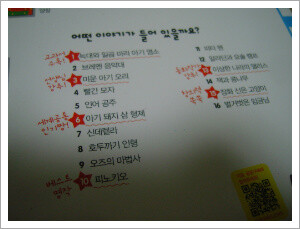 어떤 이야기가 들어 있을까요?
1 늑대와 일곱 마리 아기 염소
2 브레멘 음악대
3 미운 아기 오리
4 빨간 모자
5 인어 공주
6 아기 돼지 삼 형제
7 신데렐라
8 호두까기 인형
9 오즈의 마법사
10 피노키오
11 피터 팬
12 알라딘과 요술 램프
13 이상한 나라의 앨리스
14 잭과 콩나무
15 장화 신은 고양이
16 벌거벗은 임금님